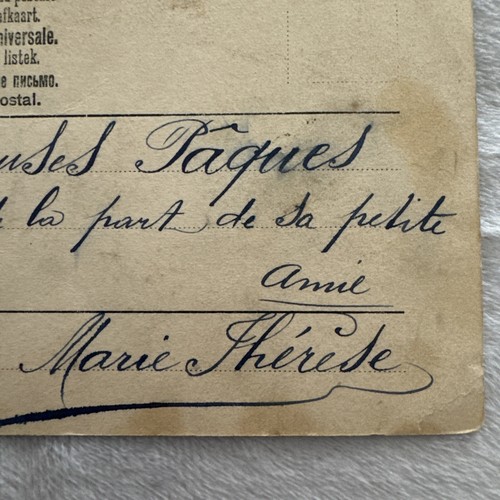 afkaart.
niversale.
listek.
е письмо.
ostal.
uses Pâques
la part de sa petite
amie
Marie Thérèse